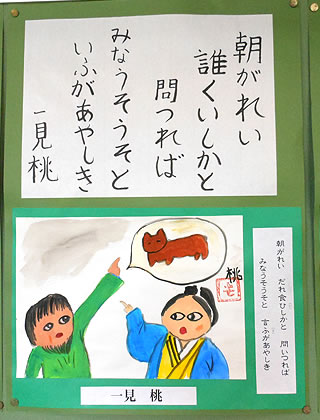 朝がれい
誰くいしかと
問つれば
みなうそうそと
いふがあやしき
一見桃
桃
朝がれい　だれ食ひしかと　問いつれば
みなうそうそと　言ふがあやしき
一見　桃